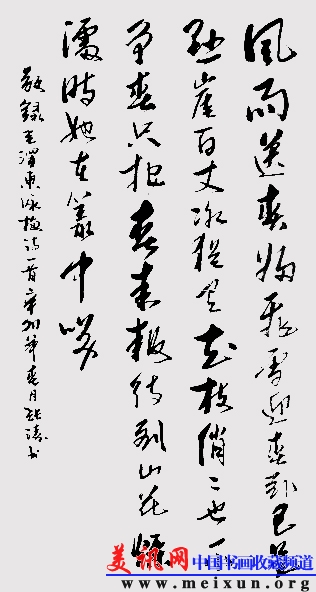 風雨送春歸飛雪迎春到已是
懸崖百丈冰猶有花枝俏々也不
争春只把春来報待到山花爛
漫時她在叢中笑
敬録毛澤東咏梅詩一首辛卯年春月书
美讯网 中国书画收藏频道
www.meixun.org